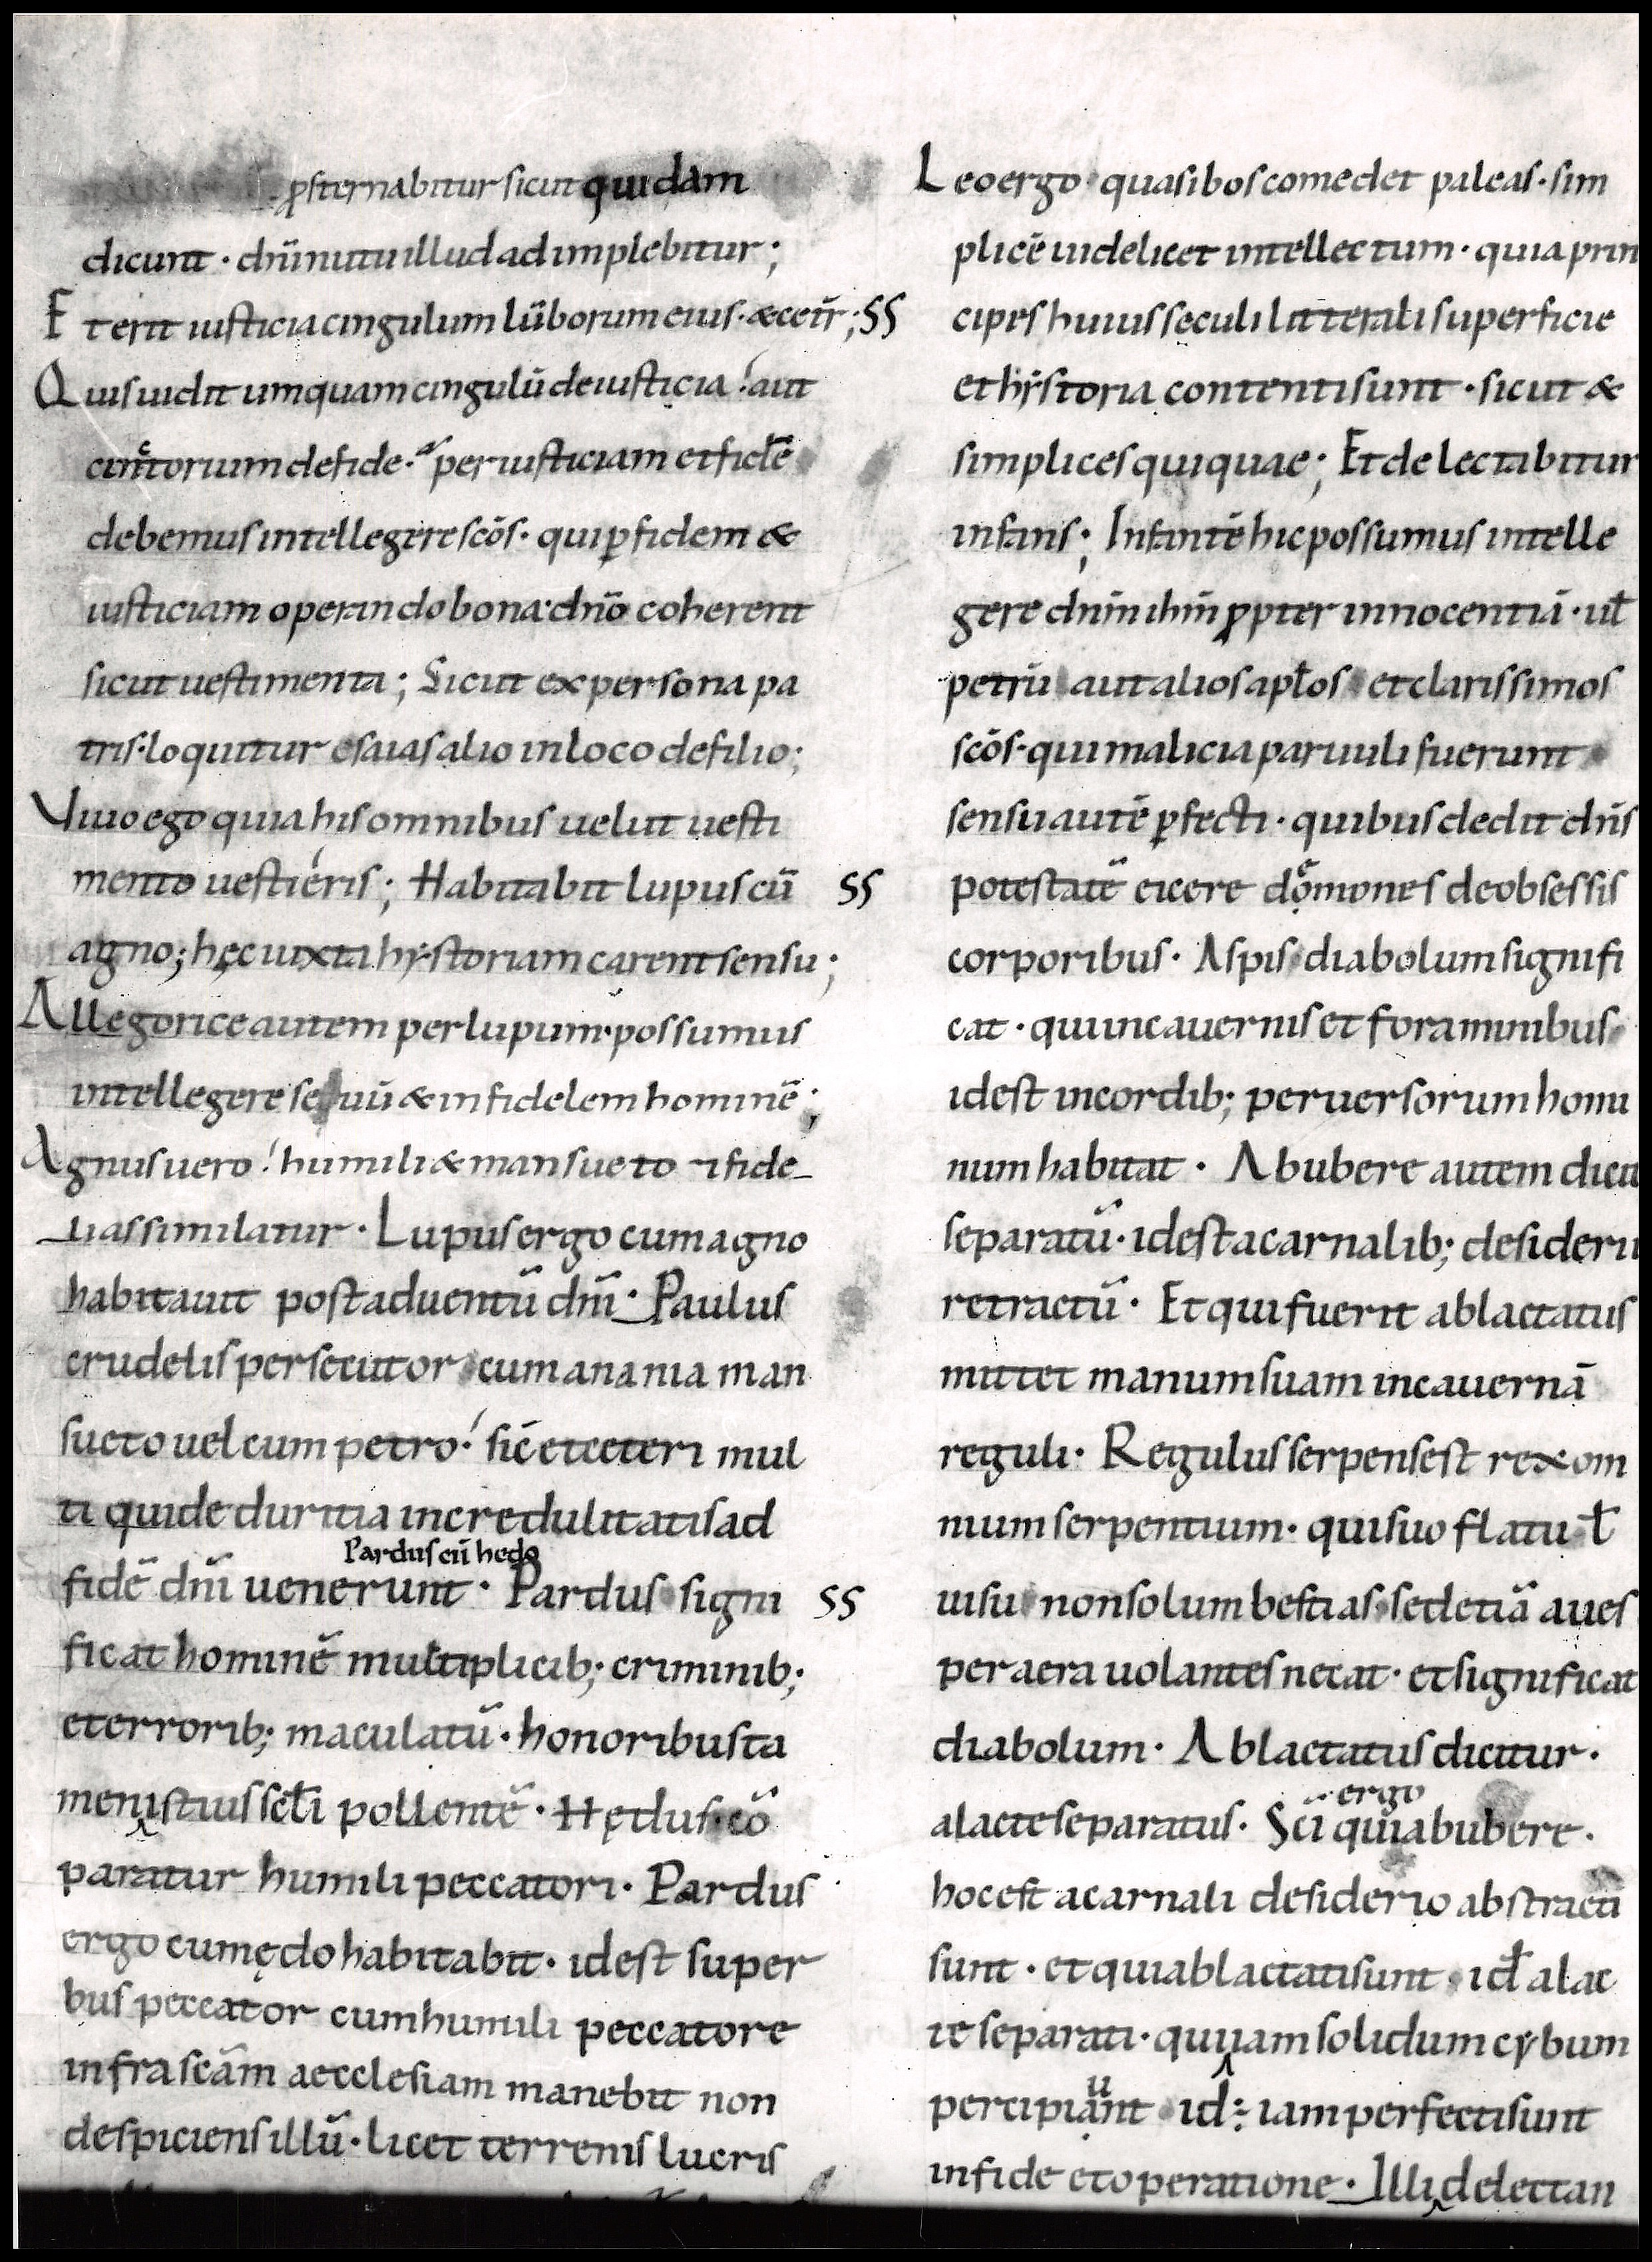 p̄sternabitur sicut quidam
dicunt · dñi nutu illud adimplebitur;
Et erit iusticia cingulum lūborum eius · & cetr̄; SS
Quis uidit umquam cingulū de iusticia! aut
cinctorium de fide · per iusticiam et fidē
debemus intellegere scōs · qui ꝑ fidem &
iusticiam operando bona: dño coherent
sicut uestimenta; Sicut ex persona pa
tris · loquitur esaias alio in loco de filio;
Viuo ego quia his omnibus uelut uesti
mento uestieris; Habitabit lupus cū SS
agno; hęc iuxta hystoriam carent sensu;
Allegorice autem per lupum · possumus
intellegere seuū & infidelem hominē;
Agnus uero! humili & mansueto ⁊ fide
li assimilatur · Lupus ergo cum agno
habitauit post aduentū dñi · Paulus
crudelis persecutor cum anania man
sueto uel cum petro · sic̄ et ceteri mul
ti qui de duritia incredulitatis ad
Pardus cū hedo
fidē dñi uenerunt · Pardus signi SS
ficat hominē multiplicib; criminib;
et errorib; maculatū · honoribus ta
men istius scl̄i pollentē · Hędus cō
paratur humili peccatori · Pardus
ergo cum ędo habitabit · id est super
bus peccator cum humili peccatore
infra scām aecclesiam manebit non
despiciens illū · licet terrenis lucris
Leo ergo quasi bos comedet paleas · sim
plicē uidelicet intellectum · quia prin
cipes huius seculi litterali superficie
et hẏstoria contenti sunt · sicut &
simplices qui quae; Et delectabitur
infans; Infantē hic possumus intelle
gere dñm ihm̄ ꝓpter innocentiā · ul̄
petrū aut alios apl̄os et clarissimos
scōs · qui malicia paruuli fuerunt
sensu autē ꝑfecti · quibus dedit dñs
potestatē eicere dęmones de obsessis
corporibus · Aspis diabolum signifi
cat · qui in cauernis et foraminibus
id est in cordib; peruersorum homi
num habitat · Ab ubere autem dicit
separatū · id est a carnalib; desiderii
retractū · Et qui fuerit ablactatus
mittet manum suam in cauernā
reguli · Regulus serpens est rex om
nium serpentium · qui suo flatu ł
uisu non solum bestias sed etiā aues
per aera uolantes necat · et significat
diabolum · Ablactatus dicitur ·
ergo
a lacte separatus · Sc̄i qui ab ubere ·
hoc est a carnali desiderio abstracti
sunt · et qui ablactati sunt id̄ a lac
te separati · qui iam solidum cybum
percipiunt id÷ iam perfecti sunt
in fide et operatione · Illi delectan